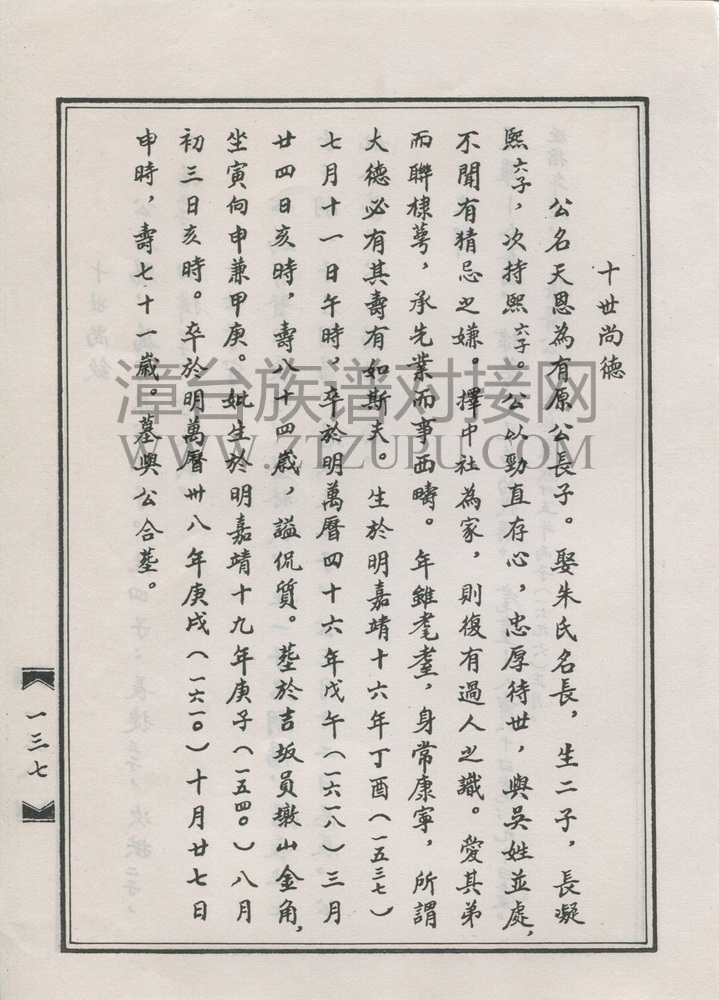 十世尚德
公名天恩為有原公長子。娶朱氏名長，生二子，長凝
熙六子，次持熙六子。公以勁直存心，忠厚待世，與吳姓並處，
不聞有猜忌之嫌。擇中社為家，則復有過人之識。愛其弟
而聯棣萼，承先業而事西疇。年雖耄耋，身常康寧，所謂
大德必有其壽有如斯夫。生於明嘉靖十六年丁酉（一五三七）
七月十一日午時、卒於明萬曆四十六年戊午（一六一八）三月
廿四日亥時，壽八十四歲，謚侃質。塟於吉坂員墩山金角，
坐寅向申兼甲庚。妣生於明嘉靖十九年庚子（一五四〇）八月
初三日亥時。卒於明萬曆卅八年庚戌（一六一〇）十月廿七日
申時，壽七十一歲。墓與公合塟。
一三七
漳台族谱对接网
WWW.ZTZUPU.COM